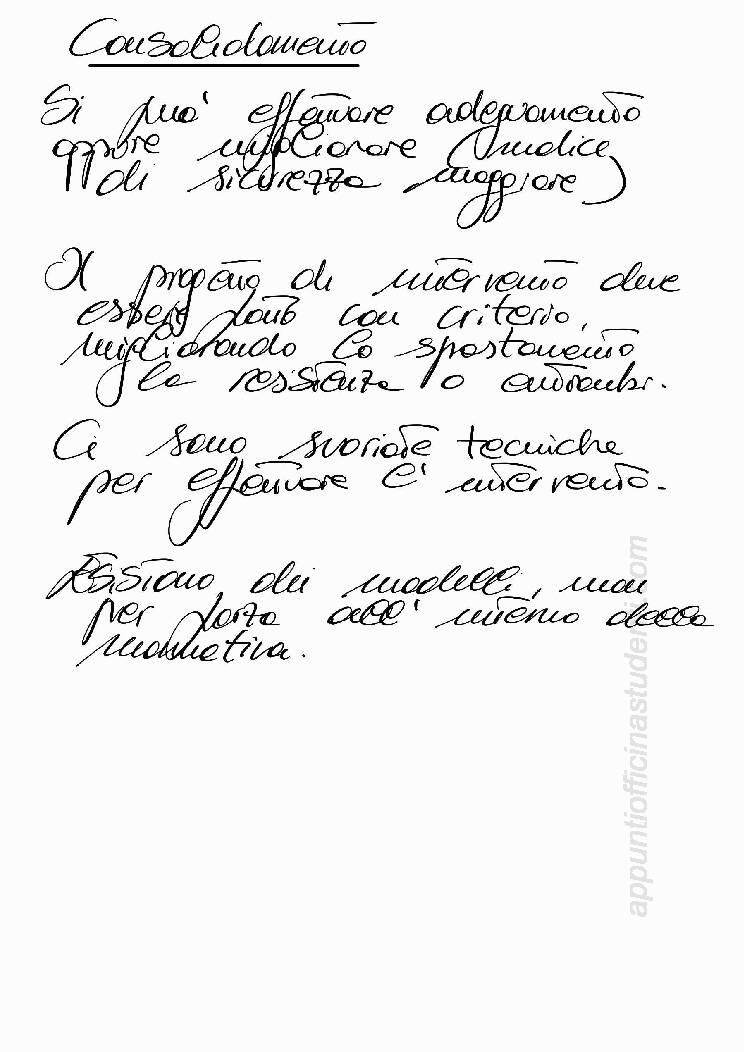 Consolidamento
Si può effettuare adeguamento
oppure migliorare (indice
di sicurezza maggiore)
Il progetto di intervento deve
essere fatto con criterio,
migliorando lo spostamento
la resistenza o entrambi.
Ci sono svariate tecniche
per effettuare l'intervento.
Esistono dei modelli, non
per forza all'interno della
normativa.
appuntiofficinastudenti.com